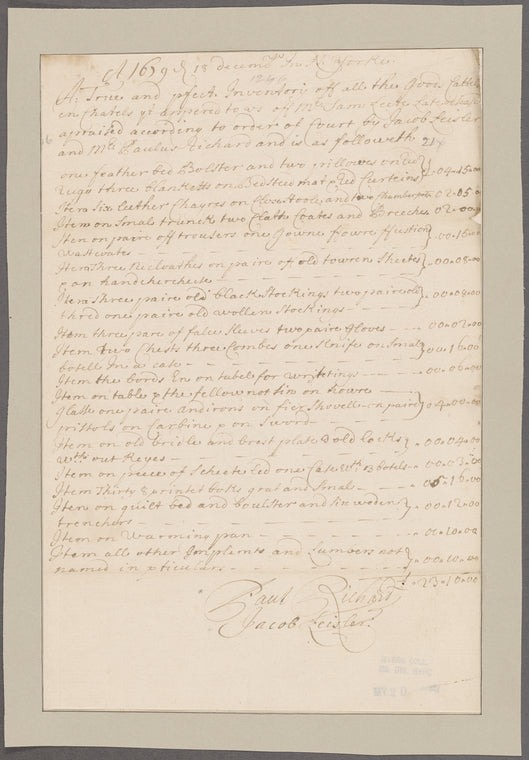 A 1679 18 decembr In N Yorke
1266
A True and pfect Inventory off all the Goods
en Chatels yt apered to us off Mr Sam Leete Late
apraised according to order of Court by Jacob Leisler
and Mr Paulus Richard and is as followeth Viz
one feather bed Bolster and two pillowes one
rugg three blanketts on Bedsteed mat Red Curteins } 04=15=00
Item Six lether Chayres on Close stoole and two Chamberpots 02=05=0
Item on Smal trunck two Clath Coates and Breeches 02=00=0
Item on paire off trousers one Gowne fowre ffustian
Wastcoates } 00=16=00
Item Three Neckloathes on paire of old towren Sheetes
on handchercheefe } 00=08=00
Item three paire old black Stockings two paire old
thrid one paire old wollen Stockings } 00=08=00
Item three pare of false Sleves two paire Gloves 00=02=00
Item two Chests three Combes one Knife on Smal
botell In a case } 00=16=00
Item the bords En on tabel for writings 00=06=00
Item on table
Glasse one paire Andirons on fier Shovell on paire
pistols on Carbine on Sword } 04=00=00
Item on old bridle and brest plate 3 old locks
wth out Keyes } 00=04=00
Item on peece of Scheete led one Case wth 13 botels 00=03=00
Item Thirty 8 printet boks grat and Smal 05=10=00
Item on quilt bed and boulster and six woden
trenchers } 00=12=00
Item on Warming pan 00=10=00
Item all other Implents and Lumbers not
named in pticulars } 00=10=00
£ 23=10=00
Paul Richard
Jacob Leisler
MYERS COLL.